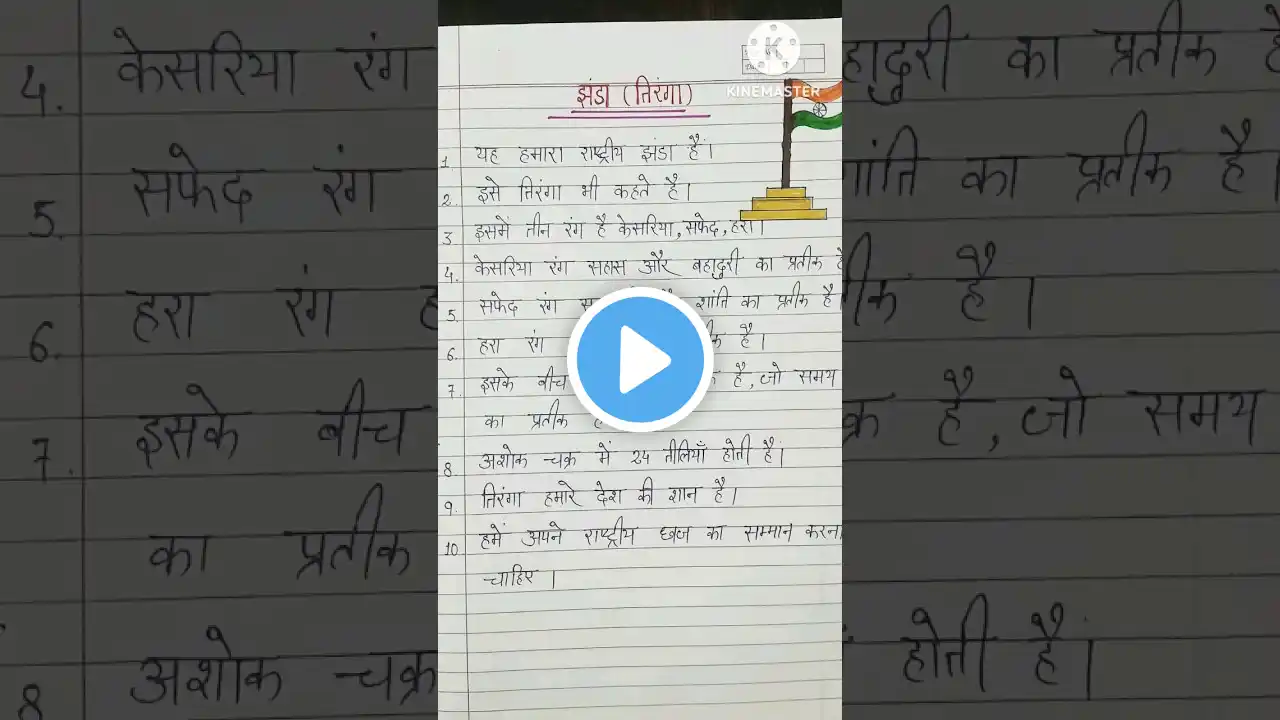 KINEMASTER
झंडा (तिरंगा)
1. यह हमारा राष्ट्रीय झंडा है।
2. इसे तिरंगा भी कहते है।
3. इसमें तीन रंग है केसरिया, सफेद, हरा।
4. केसरिया रंग सहास और बहादुरी का प्रतीक है
5. सफेद रंग शांति का प्रतीक है
6. हरा रंग है।
7. इसके बीच है, जो समय
का प्रतीक
8 अशोक चक्र में 24 तीलियाँ होती है।
9. तिरंगा हमारे देश की शान है।
10 हमें अपने राष्ट्रीय ध्वज का सम्मान करना
चाहिए ।